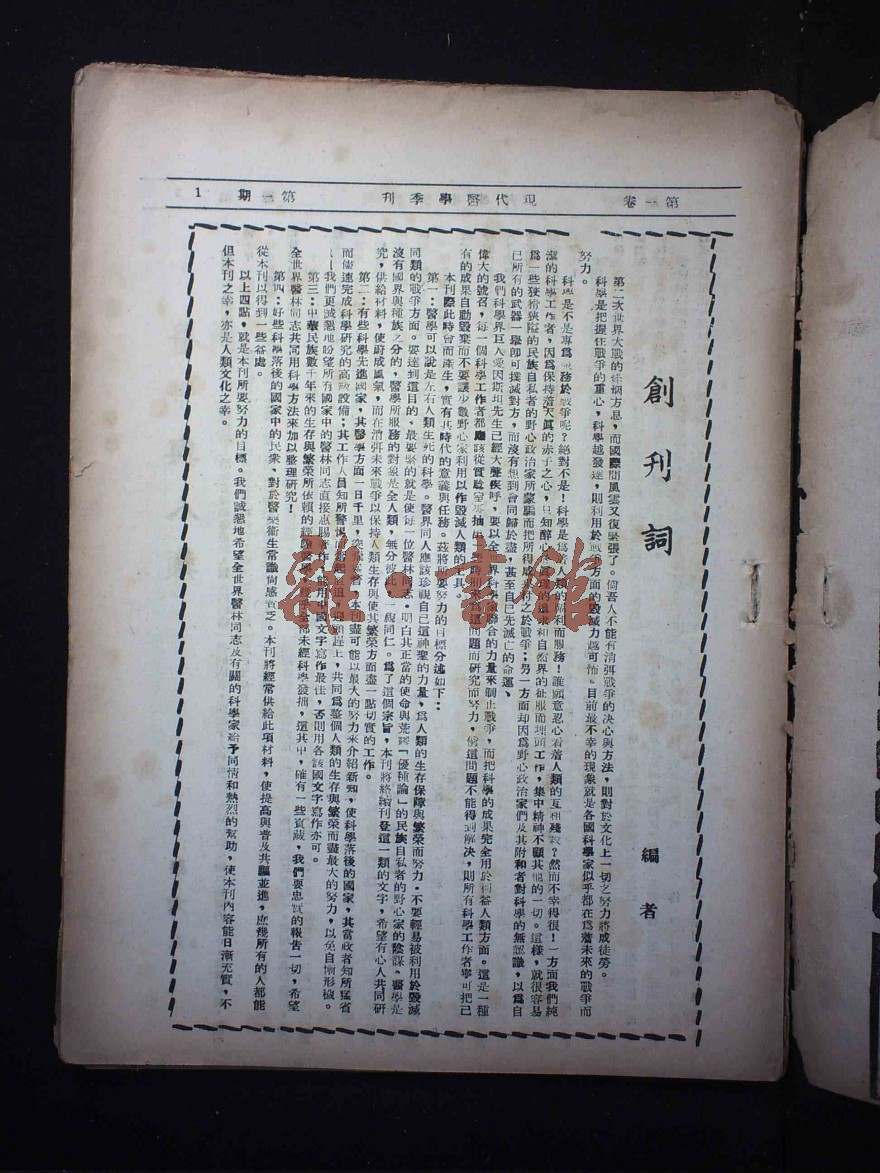 第一卷 現代醫學季刊 第一期 1
創刊詞
編者
第二次世界大戰的烽烟方息,而國際間風雲又復緊張了。倘吾人不能有消弭戰爭的决心與方法,則對於文化上一切之努力將成徒勞。
科學是把握住戰爭的重心,科學越發達,則利用於戰方面的毀滅力越可怖。目前最不幸的現象就是各國科學家似乎都在爲着未來的戰爭而
努力。
科學是不是專爲服務於戰爭呢?絕對不是!科學是爲着人類的福利而服務!誰願意忍心看着人類的互相殘殺?然而不幸得很!一方面我們純
潔的科學工作者,因爲保持着天眞的赤子之心,只知醉心理的追求和自然界的征服而埋頭工作,集中精神不顧其他的一切。這樣,就很容易
爲一些狡猾狹隘的民族自私者的野心政治家所蒙騙而把所得成付之於戰爭;另一方面却因爲野心政治家們及其附和者對科學的無認識,以爲自
已所有的武器一舉卽可撲滅對方,而沒有想到會同歸於盡,甚至自已先滅亡的命運、
我們科學界巨人愛因斯坦先生已經大聲疾呼,要以全世界科學家聯合的力量來制止戰爭,而把科學的成果完全用於利益人類方面。這是一種
偉大的號召,每一個科學工作者都應該從實驗室抽出時間來爲這問題而研究而努力,倘這問題不能得到解决,則所有科學工作者寧可把已
有的成果自動毀棄而不要讓少數野心家利用以作毀滅人類的工具。
本刊際此時會而產生,實有其時代的意義與任務。茲將所要努力的目標分述如下:
第一:醫學可以說是左右人類生死的科學。醫界同人應該珍視自己這神聖的力量,爲人類的生存保障與繁榮而努力。不要輕易被利用於毀滅
同類的戰爭方面。要達到這目的、最要緊的就是使每一位醫林同志,明白其正當的使命與荒謬「優種論」的民族自私者的野心家的陰謀。醫學是
沒有國界與種族之分的,醫學所服務的對象是全人類,無分彼此,一視同仁。爲了這個宗旨,本刊將繼續刊登這一類的文字,希望有心人共同研
究,供給材料,使蔚成風氣,而在消弭未來戰爭以保持人類生存與使其繁榮方面盡一點切實的工作。
第二:有些科學先進國家,其醫學方面一日千里,本刊盡可能以最大的努力來介紹新知,使科學落後的國家,其當政者知所猛省
而儘速完成科學研究的高級設備;其工作人員知所警惕而奮起直追迎頭趕上,共同爲整個人類的生存與繁榮而盡最大的努力,以免自慚形穢。
我們更誠懇地盼望所有國家中的醫林同志直接惠賜著作,能用中國文字寫作最佳,否則用各該國文字寫作亦可。
第三:中華民族數千年來的生存與繁榮所依賴的經驗醫學,全部未經科學發掘,這其中,確有一些寳藏,我們要忠實的報告一切,希望
全世界醫林同志共同用科學方法來加以整理研究!
第四:好些科學落後的國家中的民衆,對於醫藥衛生常識尙感貧乏。本刊將經常供給此項材料,使提高與普及共驅並進,庶幾所有的人都能
從本刊以得到一些益處。
以上四點,就是本刊所要努力的目標。我們誠懇地希望全世界醫林同志及有關的科學家給予同情和熱烈的幫助,使本刊內容能日漸充實,不
但本刊之幸,亦是人類文化之幸。
雜·書館